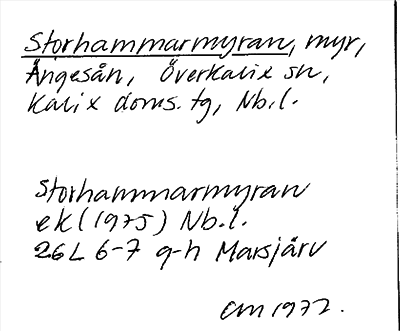 Storhammarmyran, myr,
Ängesån, Överkalix sn,
Kalix doms. tg, Nb.l.
Storhammarmyran
ek (1975) Nb.l.
26L 6-7 g-h Marsjärv
1972.